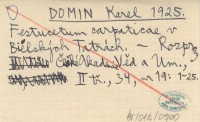 DOMIN Karel 1925.
Festucetum carpaticae v
Bielských Tatrách. — Rozpr.
České Akad. Věd a Um.,
II tř., 34, nr 19: 1-25.